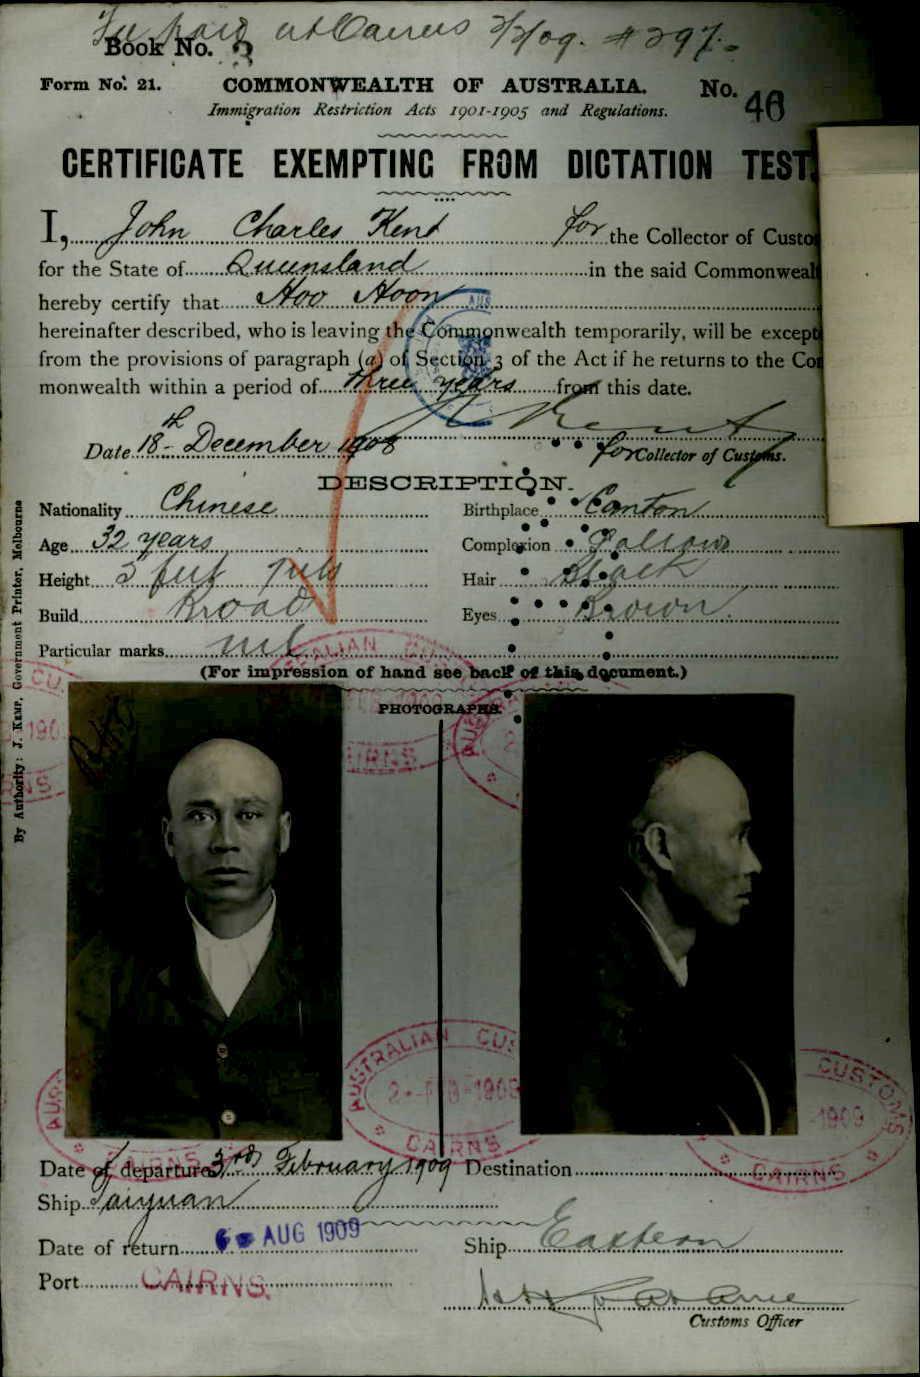 Fee paid at Cairns 3/2/09. # 297.
Book No. 3
Form No. 21. COMMONWEALTH OF AUSTRALIA. No. 46
Immigration Restriction Acts 1901-1905 and Regulations.
CERTIFICATE EXEMPTING FROM DICTATION TEST.
I, John Charles Kent for the Collector of Custo
for the State of Queensland in the said Commonwealt
hereby certify that Hoo Hoon
hereinafter described, who is leaving the Commonwealth temporarily, will be except
from the provisions of paragraph (a) of Section 3 of the Act if he returns to the Co
monwealth within a period of three years from this date.
Date 18th December 1908 for Collector of Customs.
DESCRIPTION.
Nationality Chinese Birthplace Canton
Age 32 years Complexion
Height 5 feet Hair Black
Build Broad Eyes Brown.
Particular marks nil
(For impression of hand see back of this document.)
PHOTOGRAPHS.
By Authority: J. Kemp, Government Printer, Melbourne
AUSTRALIAN CUSTOMS
1909
CAIRNS
Date of departure 3rd February 1909 Destination
Ship Taiyuan
Date of return 6 AUG 1909 Ship Eastern
Port CAIRNS.
Customs Officer